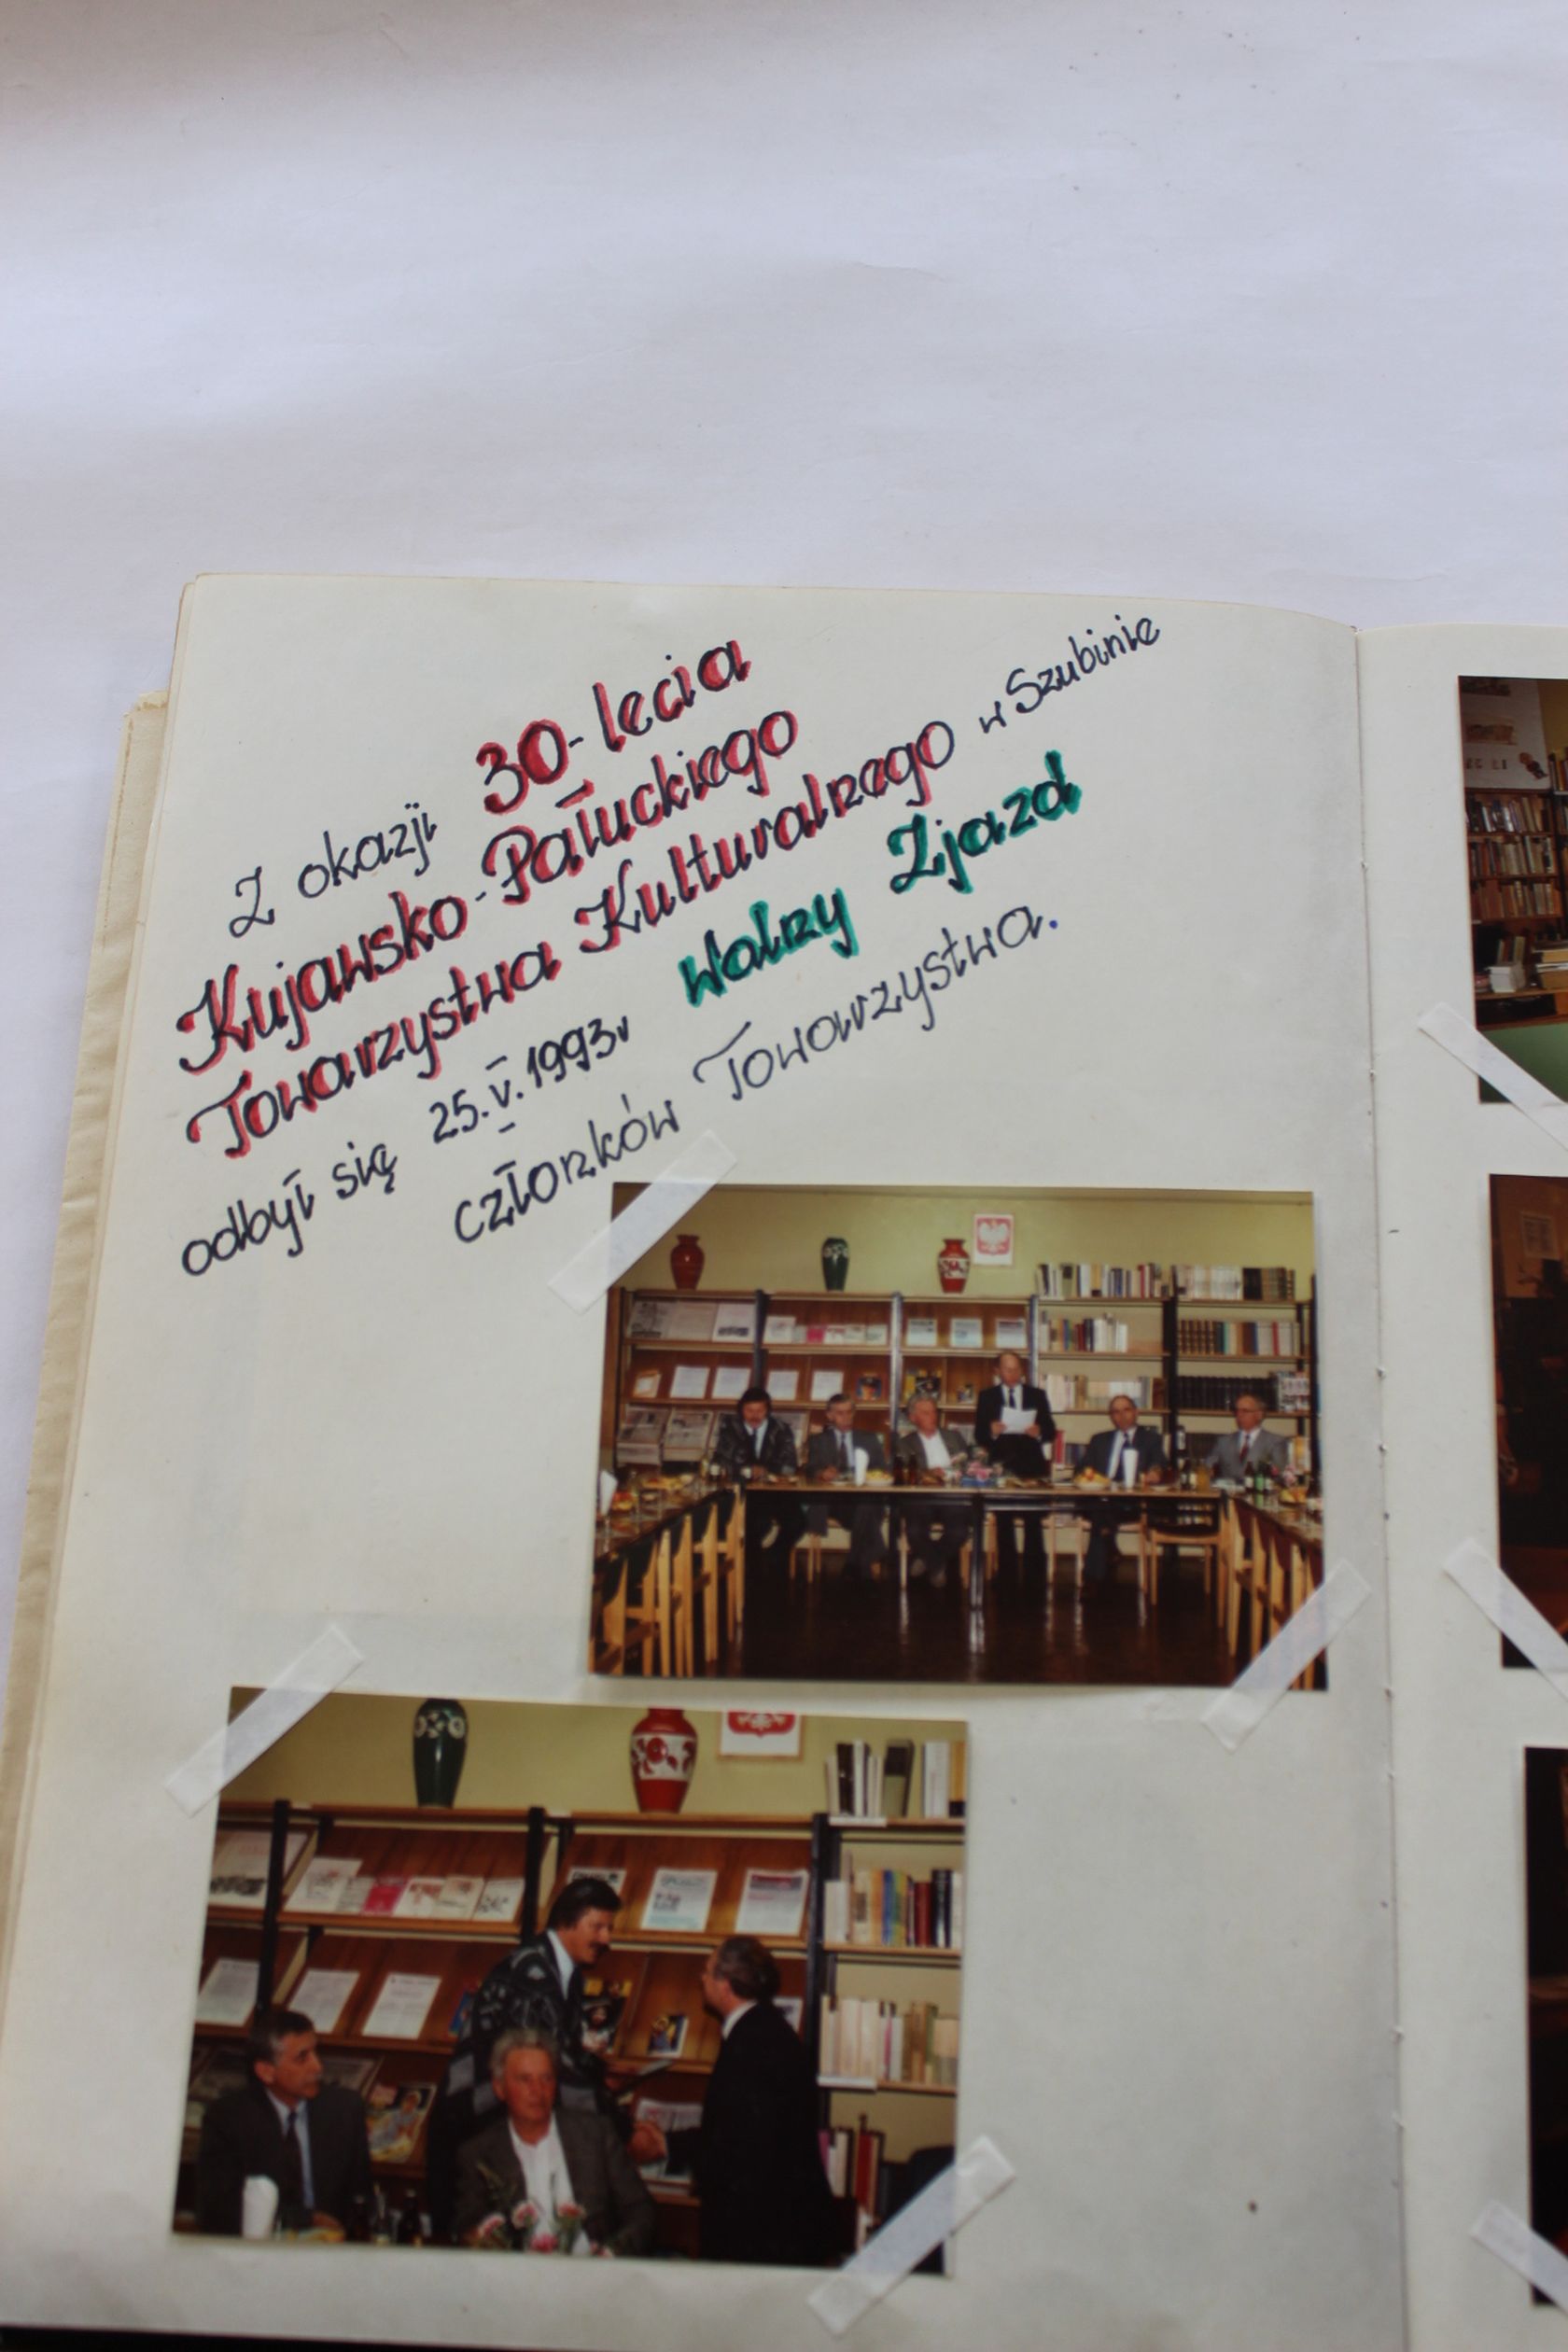 Z okazji 30-lecia
Kujawsko-Pałuckiego
Towarzystwa Kulturalnego w Szubinie
odbył się 25.V.1993r Walny Zjazd
członków Towarzystwa.